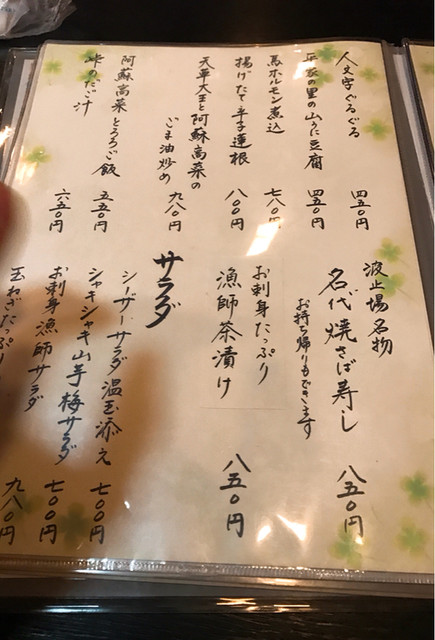 人文字ぐるぐる 四五〇円
平家の里の山うに豆腐 四五〇円
馬ホルモン煮込 七八〇円
揚げたて辛子蓮根 八〇〇円
天草大王と阿蘇高菜の
ごま油炒め 九八〇円
阿蘇高菜とろろご飯 五五〇円
峠のだご汁 六五〇円
波止場名物
名代焼さば寿し 八五〇円
お持ち帰りもできます
お刺身たっぷり
漁師茶漬け 八五〇円
サラダ
シーザーサラダ温玉添え 七〇〇円
シャキシャキ山芋梅サラダ 七〇〇円
お刺身漁師サラダ 九八〇円
玉ねぎたっぷり